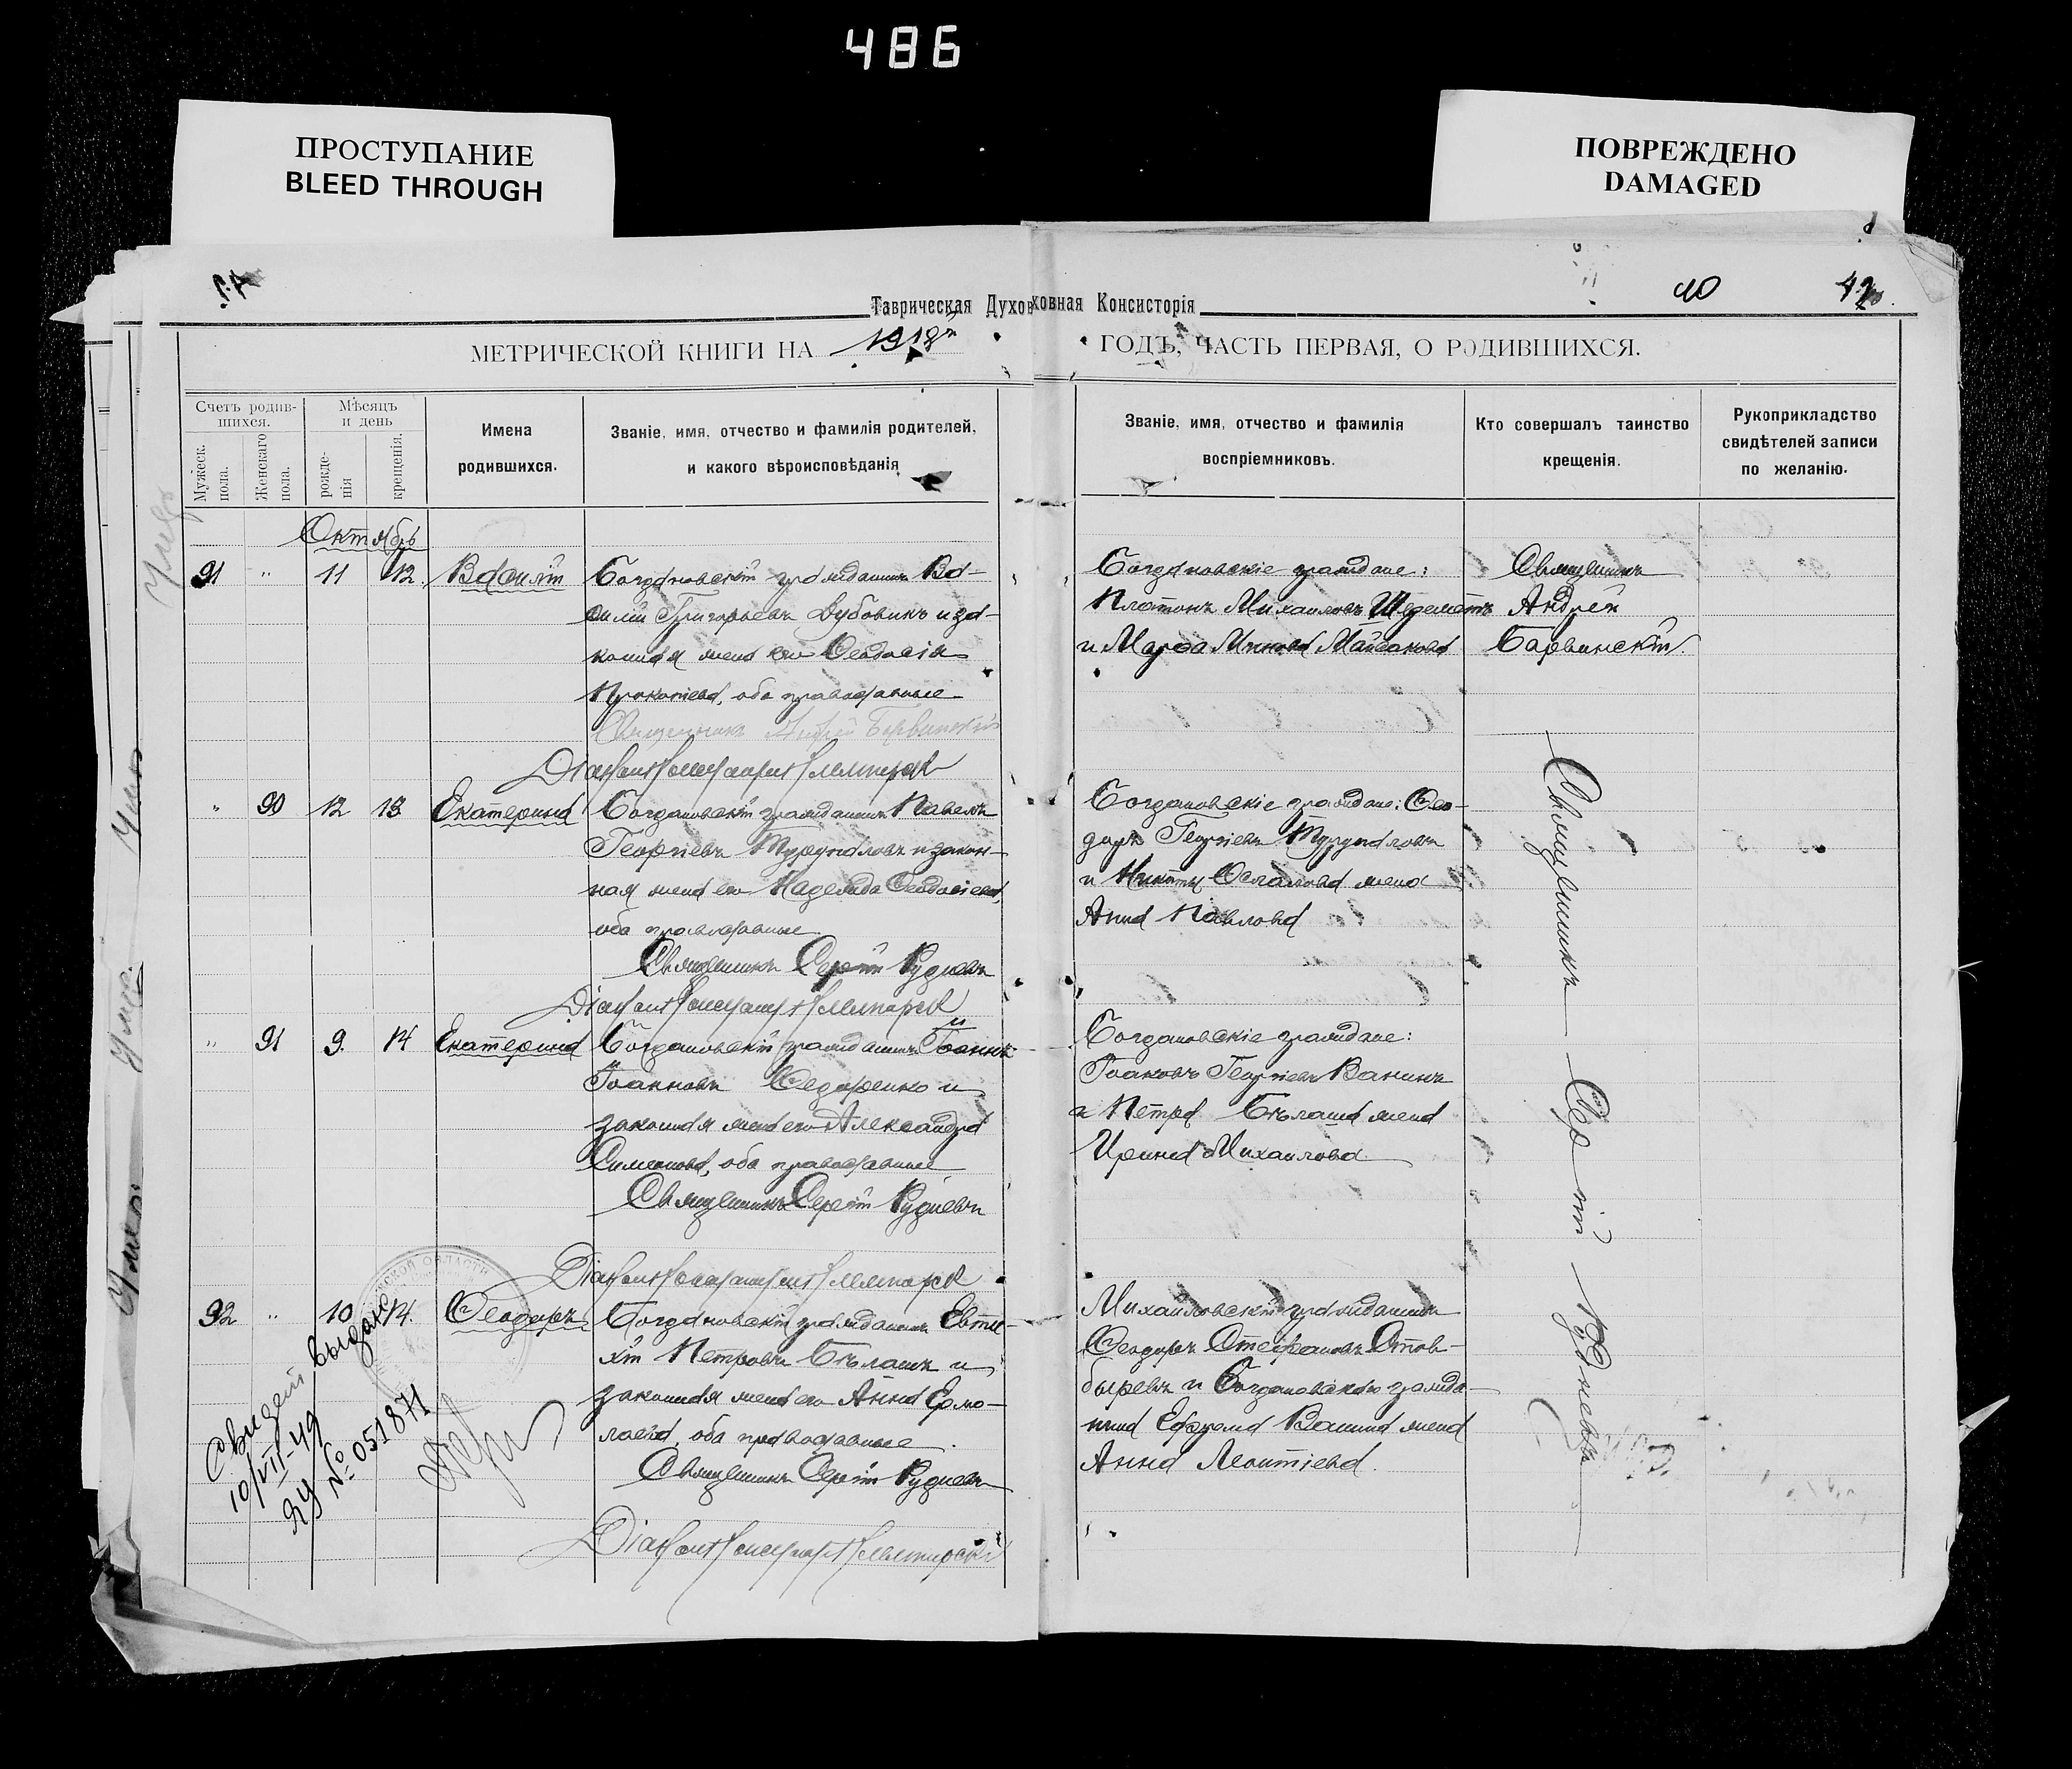 486
ПРОСТУПАНИЕ
BLEED THROUGH
ПОВРЕЖДЕНО
DAMAGED
Таврическая Духовная Консисторія
40
МЕТРИЧЕСКОЙ КНИГИ НА 1918й ГОДЪ, ЧАСТЬ ПЕРВАЯ, О РОДИВШИХСЯ.
Счетъ родившихся.
Мужеск. пола.
Женскаго пола.
Мѣсяцъ и день
рожденія
крещенія.
Имена родившихся.
Званіе, имя, отчество и фамилія родителей, и какого вѣроисповѣданія
Званіе, имя, отчество и фамилія воспріемниковъ.
Кто совершалъ таинство крещенія.
Рукоприкладство свидѣтелей записи по желанію.
Октябрь
91 " 11 12. Василій
Богдановскій гражданинъ Ва-
силій Григорьевъ Дубовикъ и за-
конная жена его Ѳеодосія
Прокопіева, оба православные
Священникъ Андрей Барвинскій
Богдановскіе граждане:
Платонъ Михаиловъ Шереметъ
и Марѳа Минова Майбакова
Священникъ
Андрей
Барвинскій.
" 90 12 13 Екатерина
Богдановскій гражданинъ Павелъ
Георгіевъ и закон-
ная жена его Надежда Ѳеодосіева,
оба православные
Священникъ Сергій Рудневъ
Богдановскіе граждане: Ѳео-
доръ Георгіевъ
и Никиты жена
Анна Павлова
" 91 9. 14 Екатерина
Богдановскій гражданинъ Іоаннъ
Іоанновъ Ѳедоренко и
законная жена его Александра
Симеонова, оба православные
Священникъ Сергій Рудневъ
Богдановскіе граждане:
Іаковъ Георгіевъ Ванинъ
и Петра Бѣлаша жена
Ирина Михаилова
92 " 10 14. Ѳеодоръ
Богдановскій гражданинъ Евти-
хій Петровъ Бѣлашъ и
законная жена его Анна Ермо-
лаева, оба православные
Священникъ Сергій Рудневъ
Михайловскій гражданинъ
Ѳеодоръ Стефановъ
и Богдановскаго гражда-
нина Ефрема Ванина жена
Анна Леонтіева.
Священникъ Сергій Рудневъ
Свидет выдано
10/VII-49
ЯУ № 051871